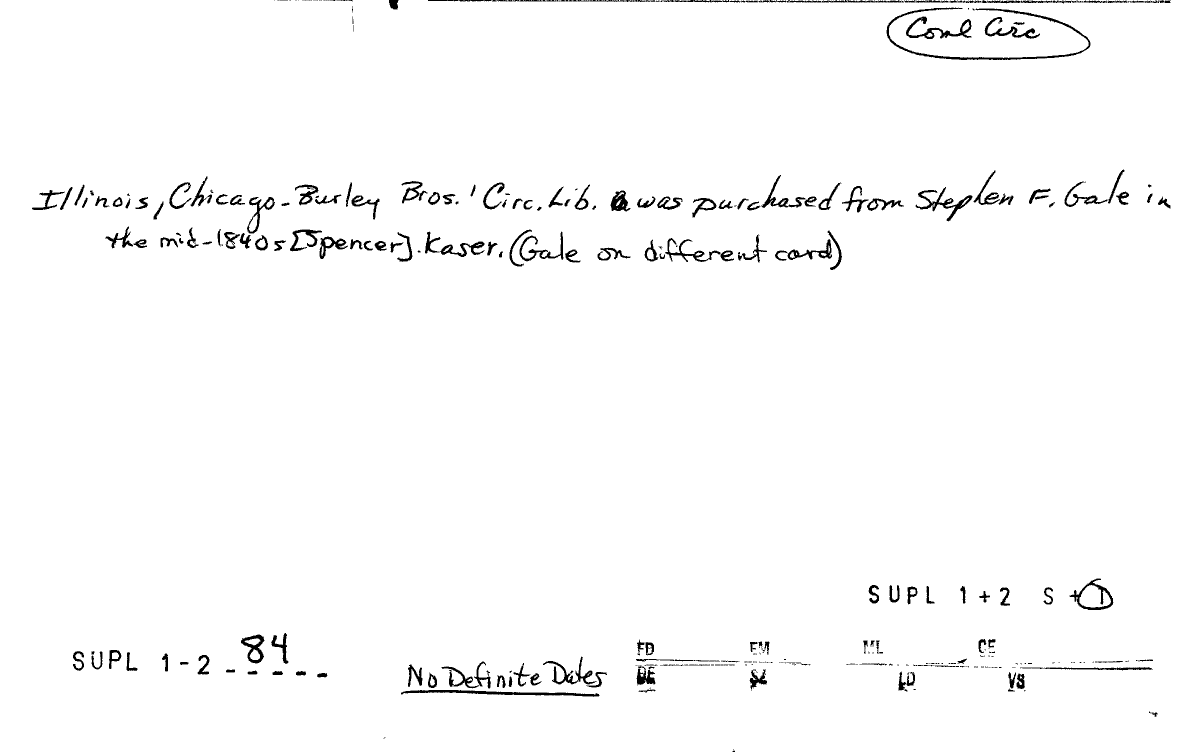 Coml Circ
Illinois, Chicago-Burley Bros.' Circ. Lib. was purchased from Stephen F. Gale in
the mid-1840s [Spencer]. Kaser. (Gale on different card)
SUPL 1+2 S+1
SUPL 1-2-84---
No Definite Dates
FD EM ML CE
DE LD VS